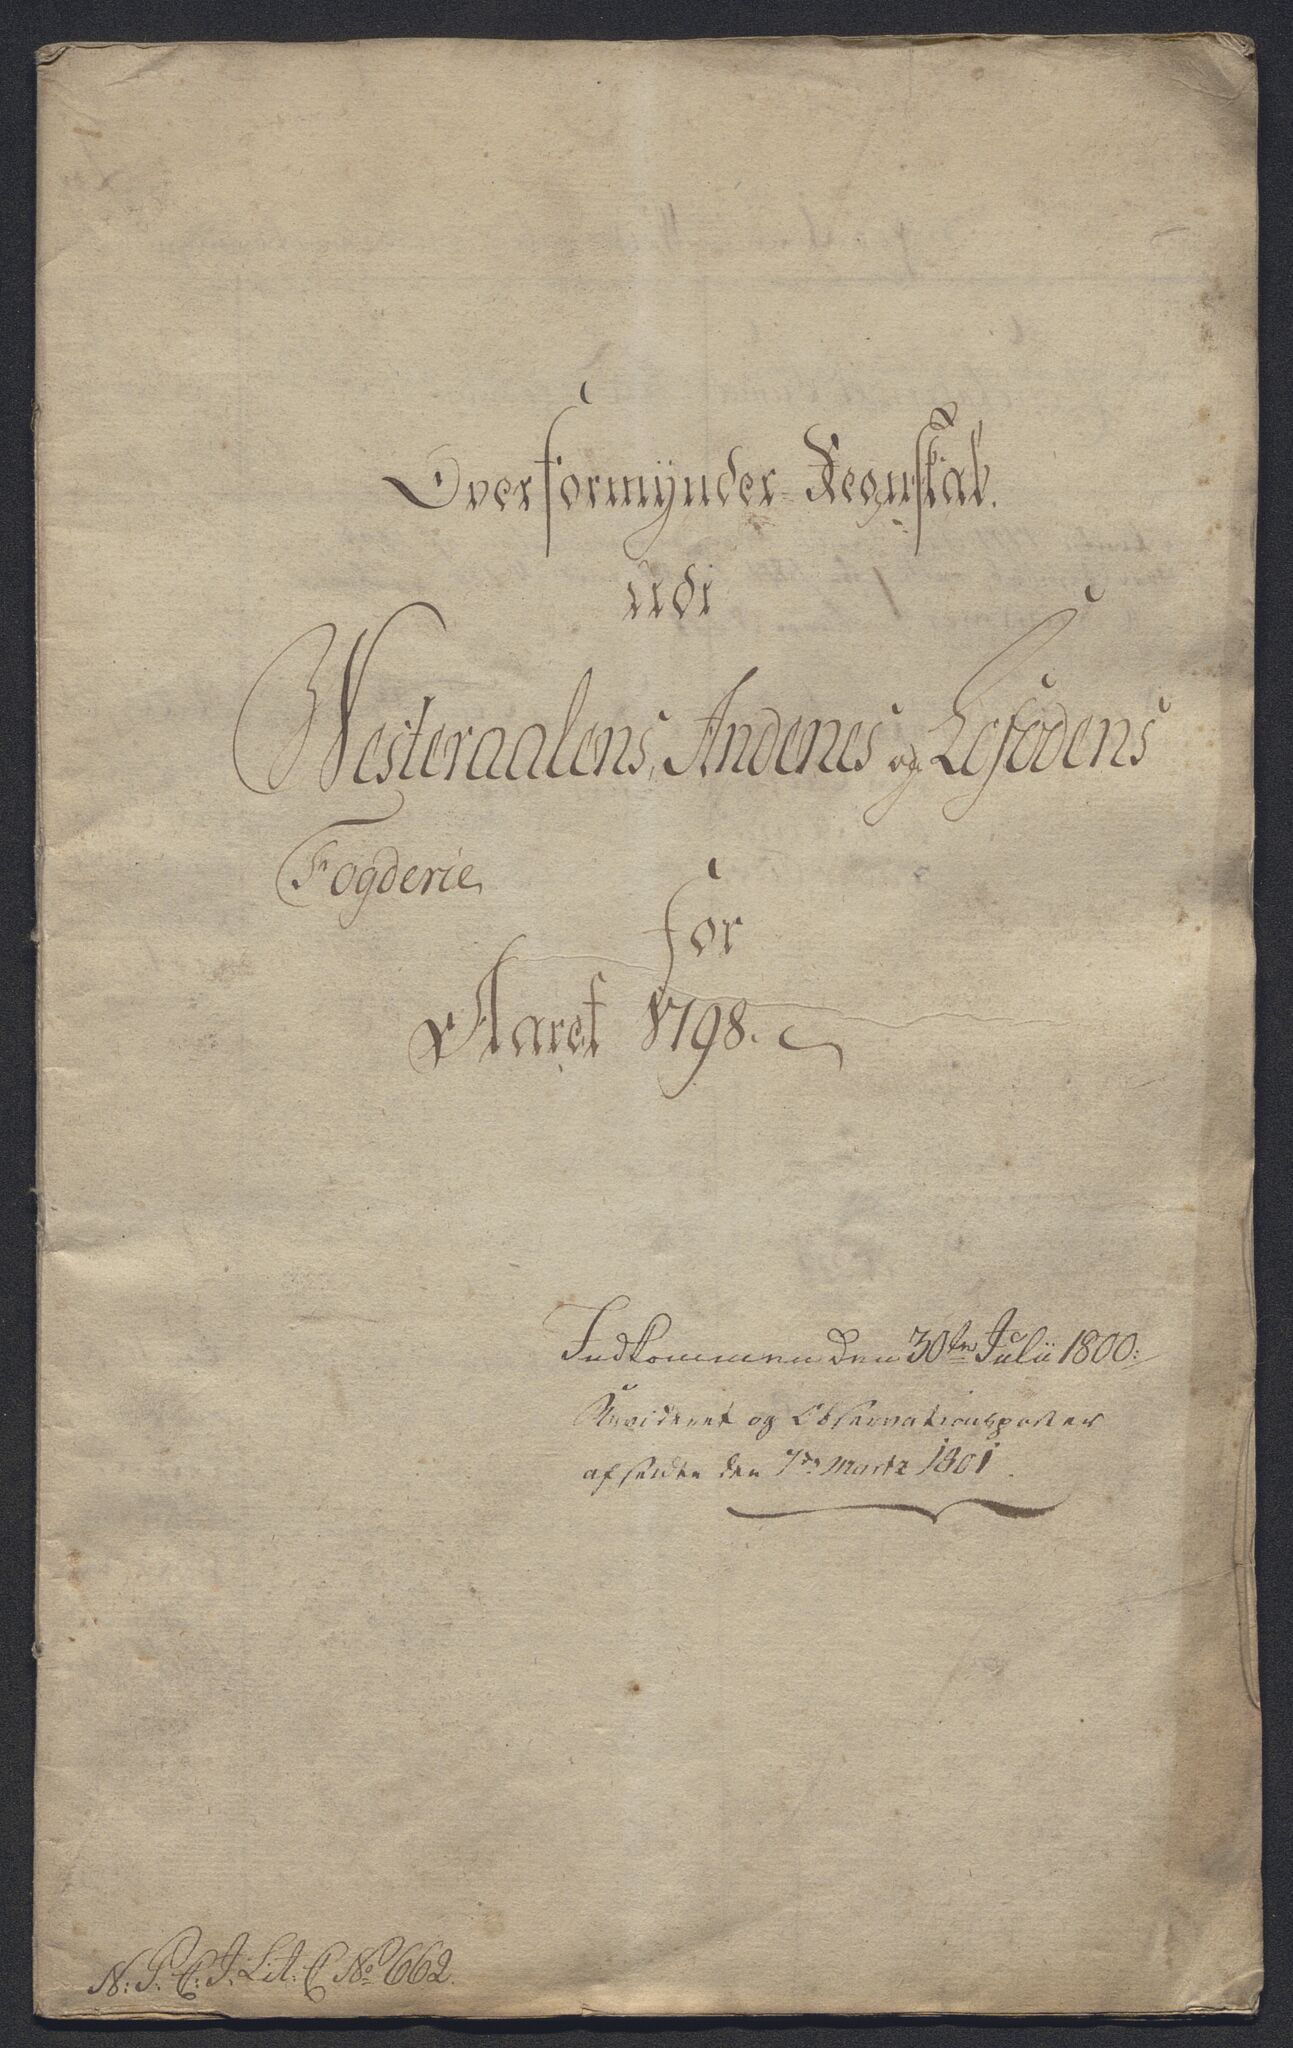 Overformÿnder-Regnskab.
udi
Westeraalens, Andenes og Lofodens
Fogderie
for
Aaret 1798.
Indkommen den 30te Julii 1800:
Revideret og Observationsposter
afsendte den 7de Martz 1801.
N: P. C: J. Lit: C No 662.